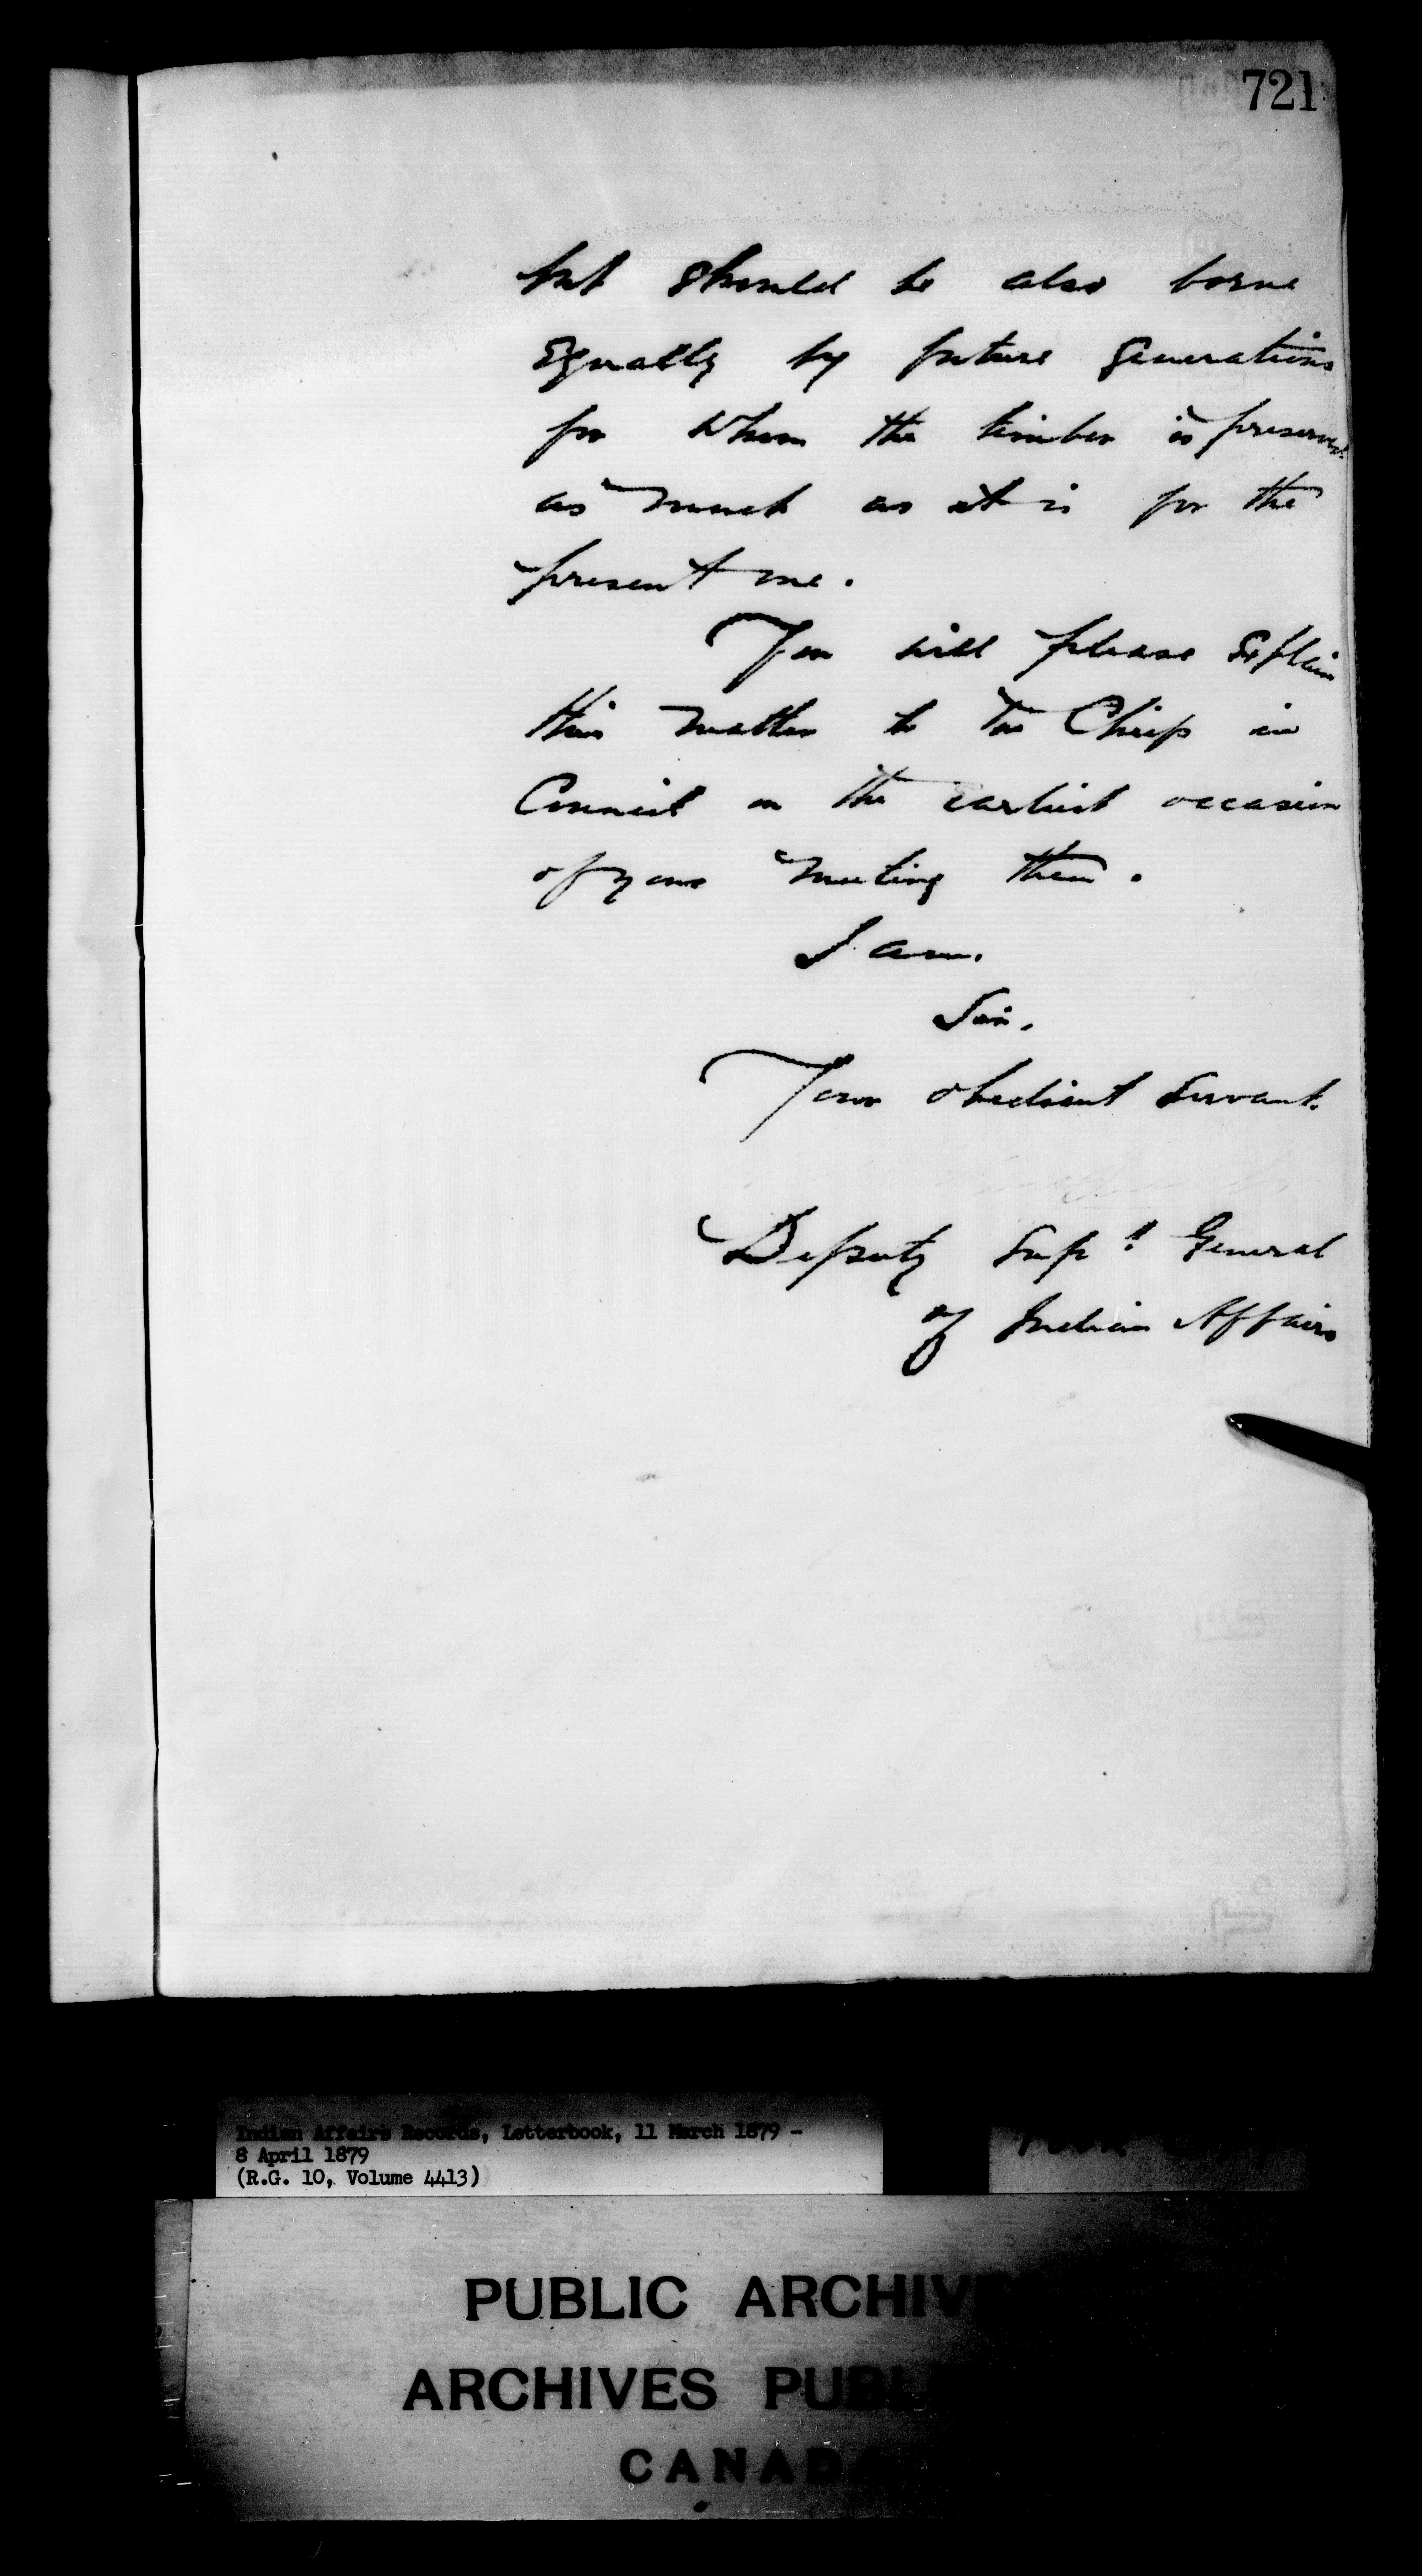 721
but should be also borne
Equally by future Generations
for whom the timber is preserved
as much as it is for the
present one.
You will please Explain
this matter to the Chiefs in
Council on the earliest occasion
of your meeting them.
I am.
Sir,
Your obedient Servant.
Deputy Supt General
of Indian Affairs
Indian Affairs Records, Letterbook, 11 March 1879 -
8 April 1879
(R.G. 10, Volume 4413)
PUBLIC ARCHIV
ARCHIVES PUBL
CANADA